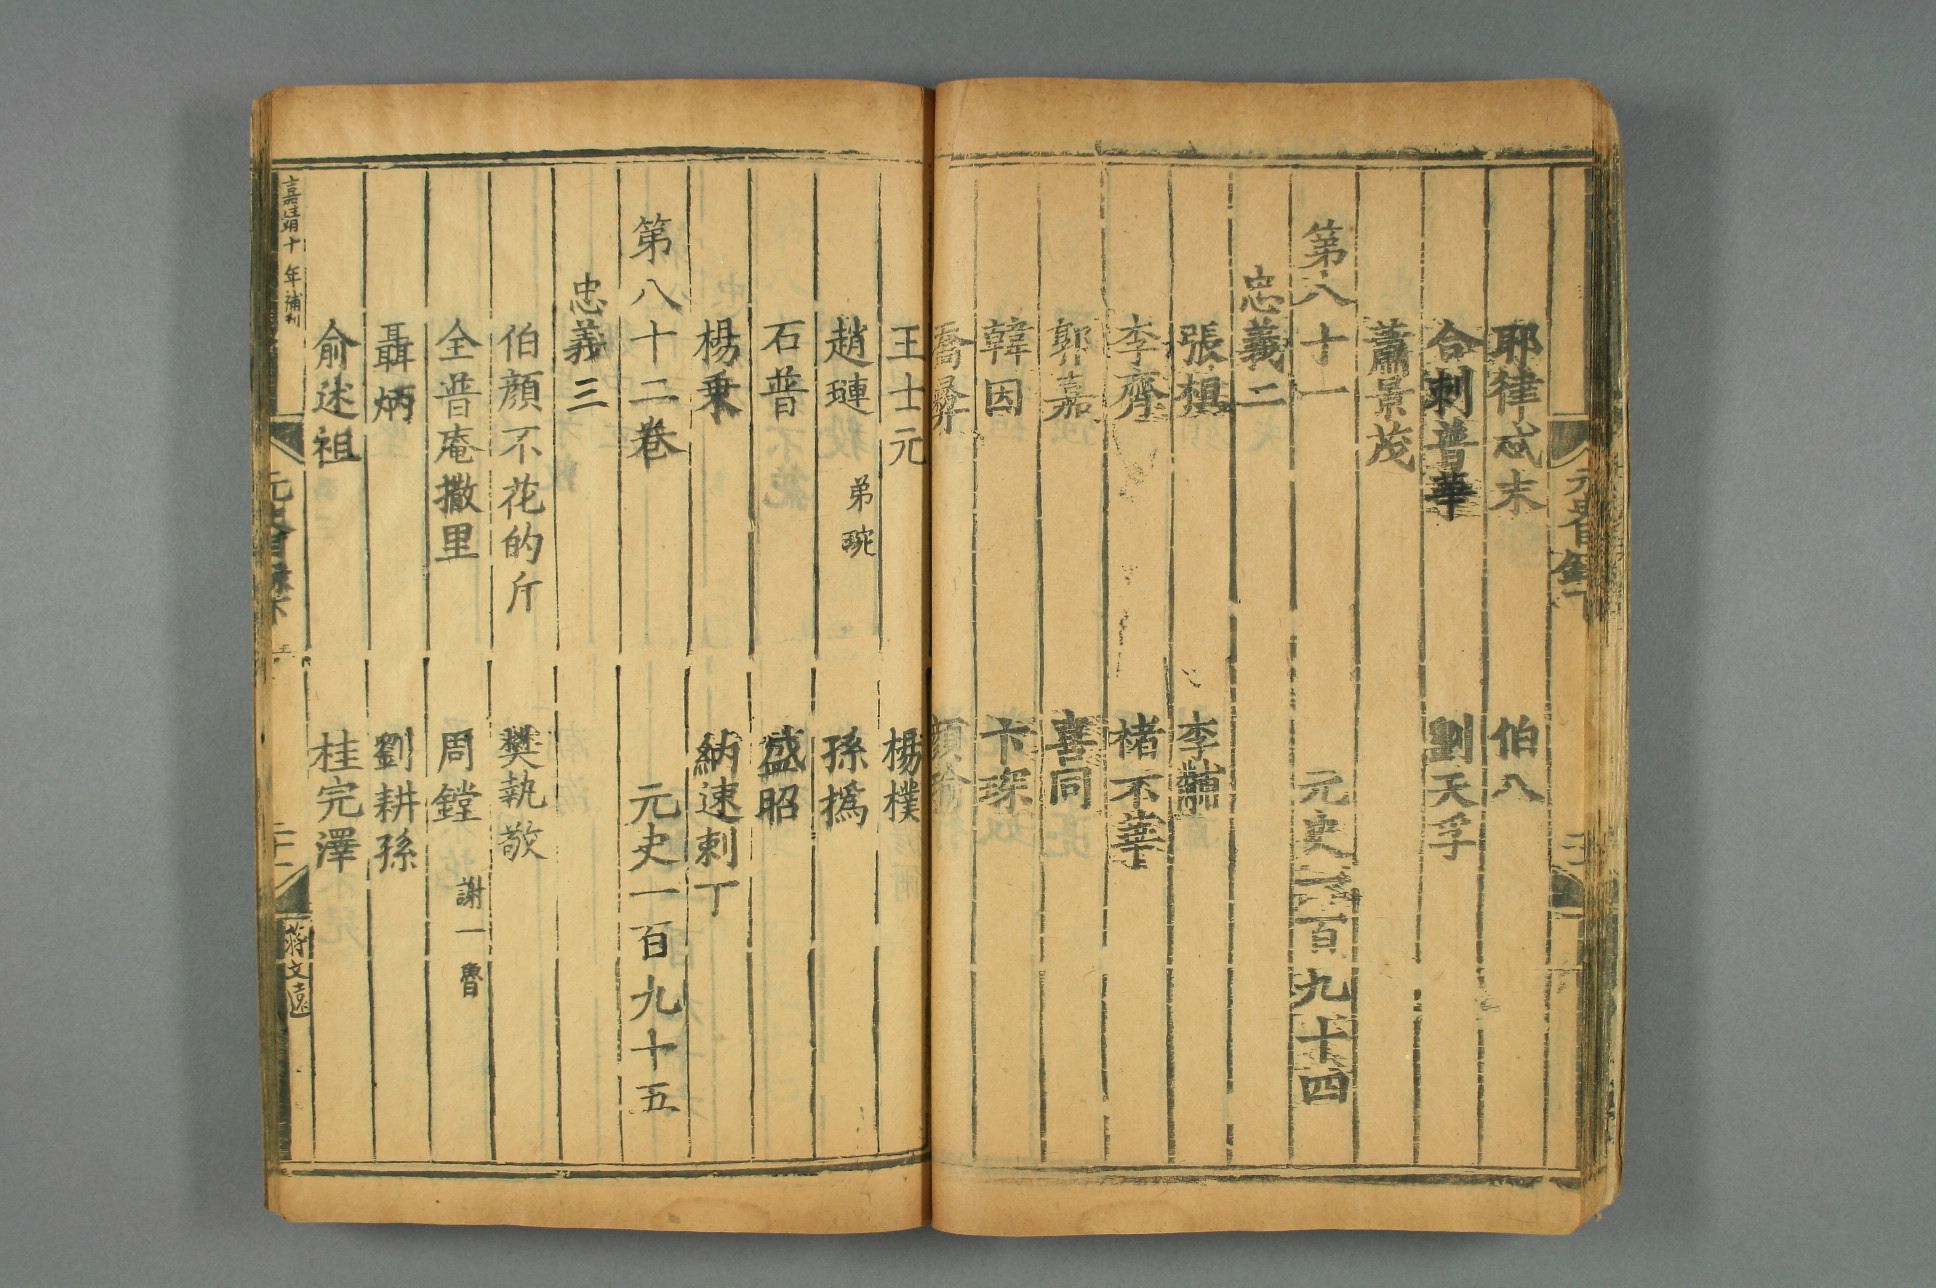 耶律忒末 伯八
合剌普華 劉天孚
蕭景茂
第八十一 元史一百九十四
忠義二
張楨 李黼
李齊 褚不華
郭嘉 喜同
韓因 卞琛
喬彝 顏瑜
王士元 楊樸
趙璉 弟琬 孫撝
石普 盛昭
楊乘 納速剌丁
第八十二卷 元史一百九十五
忠義三
伯顏不花的斤 樊執敬
全普庵撒里 周鏜 謝一魯
聶炳 劉耕孫
俞述祖 桂完澤
嘉靖十年補刊
元史目錄下
二十一
蔣文遠